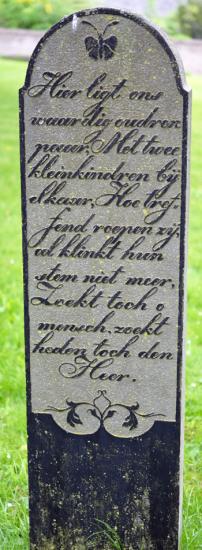 Hier ligt ons
waardig oudren
paar, Met twee
kleinkindren bij
elkaar, Hoe tref-
fend roepen zij,
al klinkt hun
stem niet meer,
Zoekt toch o
mensch, zoekt
heden toch den
Heer.